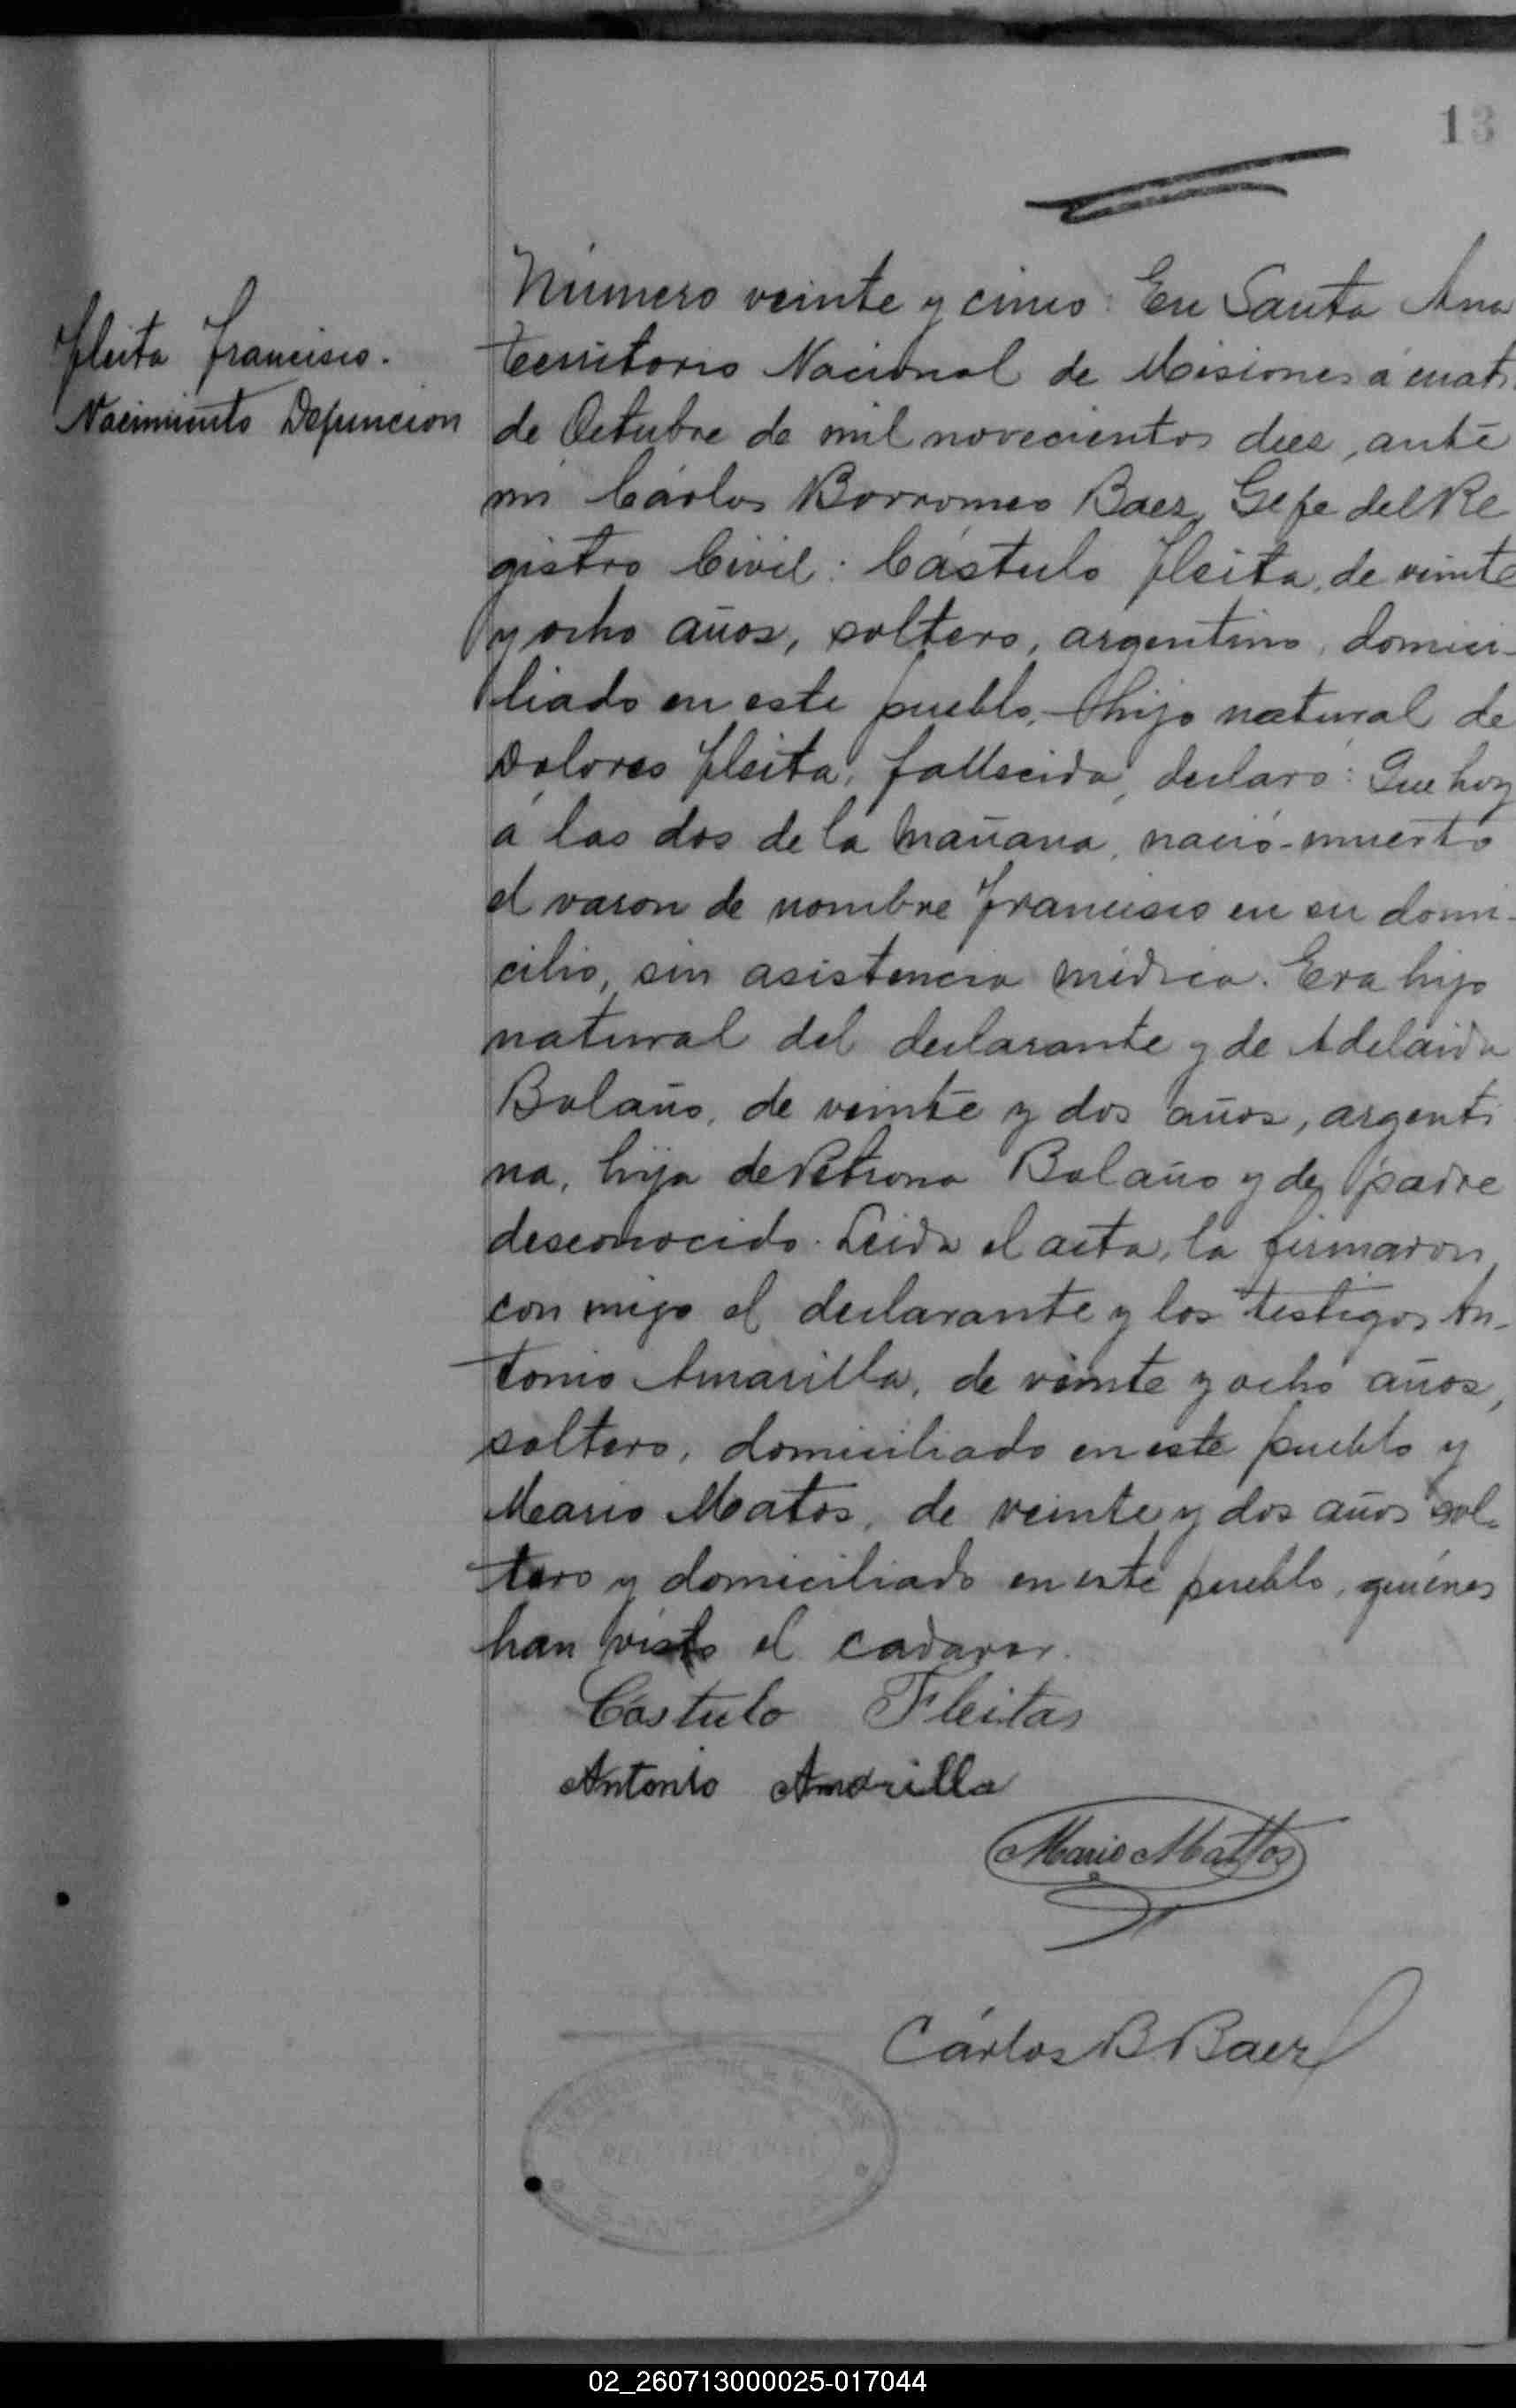 13
Fleita Francisco.
Nacimiento Defuncion
Número veinte y cinco: En Santa Ana
Territorio Nacional de Misiones á cuatr
de Octubre de mil novecientos diez, ante
mi Cárlos Borromeo Baez, Gefe del Re
gistro Civil: Cástulo Fleita, de veinte
y ocho años, soltero, argentino, domici-
liado en este pueblo, hijo natural de
Dolores Fleita, fallecida, declaró: Que hoy
á las dos de la mañana, nació muerto
el varon de nombre Francisco en su domi-
cilio, sin asistencia médica. Era hijo
natural del declarante y de Adelaida
Bolaño, de veinte y dos años, argenti
na, hija de Petrona Bolaño y de padre
desconocido. Leida el acta, la firmaron
con migo el declarante y los testigos An-
tonio Amarilla, de veinte y ocho años,
soltero, domiciliado en este pueblo y
Mario Matos, de veinte y dos años sol-
tero y domiciliado en este pueblo, quienes
han visto el cadaver.
Cástulo Fleitas
Antonio Amarilla
Mario Mattos
Cárlos B Baez
02_260713000025-017044